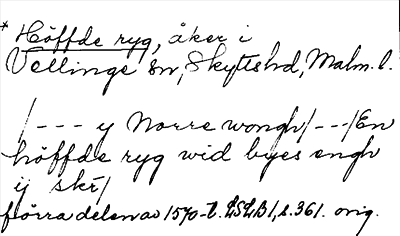 * Höffde ryg, åker i
Vellinge sn, Skytts hd, Malm. l.
/--- y Norre wongh/---/En
höffde ryg wid byes engh
ij skr̄/
förra delen av 1570-t. LSLB1, s. 361. orig.